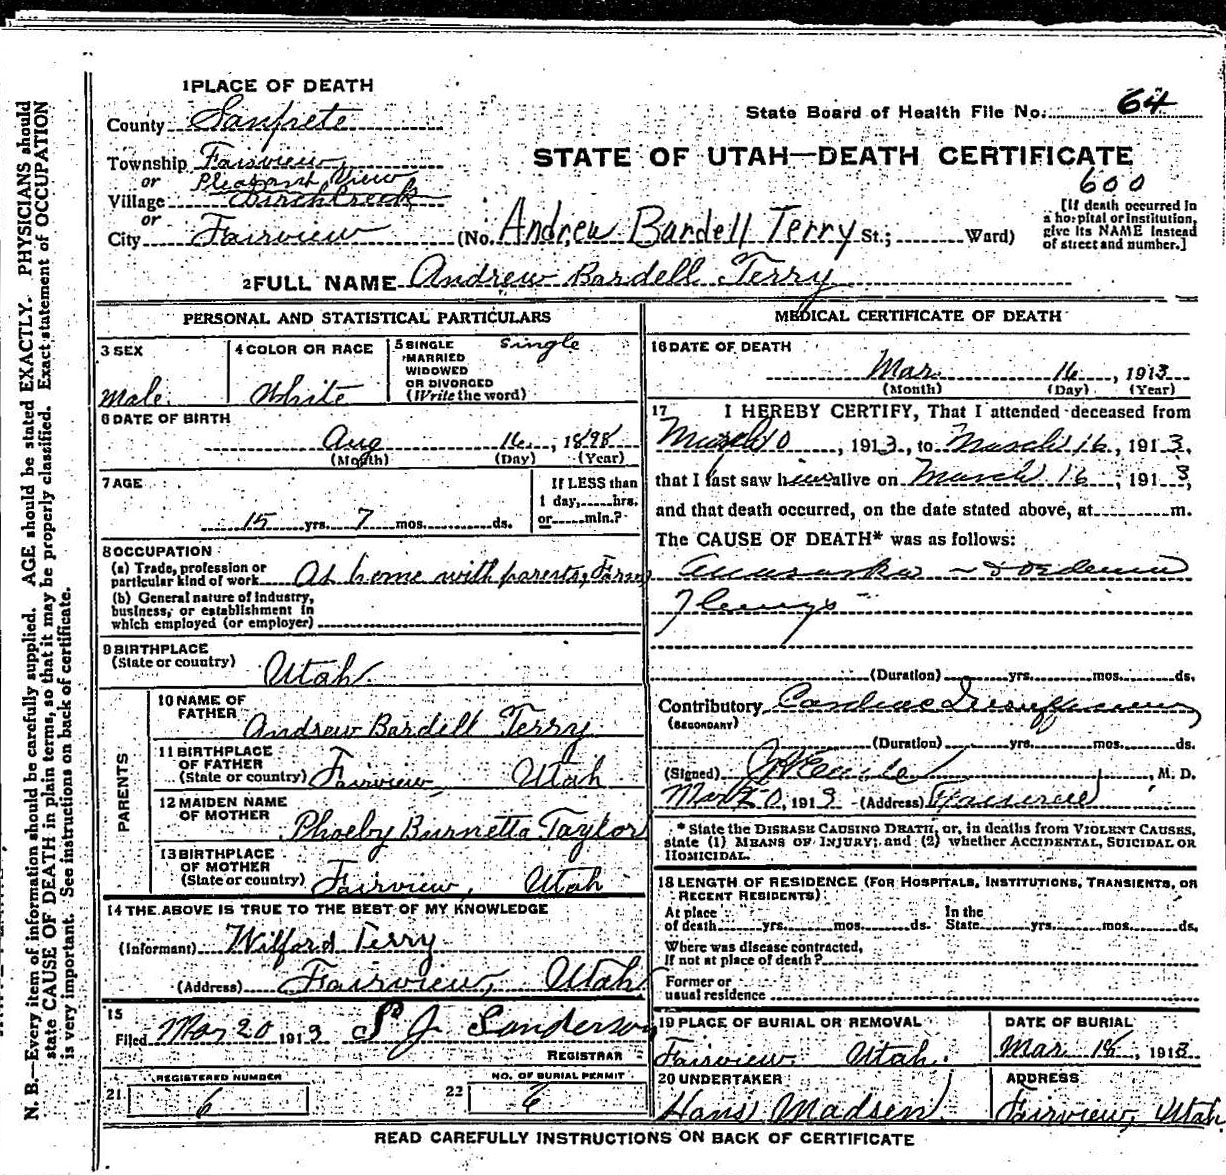 1 PLACE OF DEATH
State Board of Health File No. 64
County Sanpete
STATE OF UTAH—DEATH CERTIFICATE
Township Fairview,
or
Pleasant View
Village Birch Creek
600
[If death occurred in
a hospital or institution,
give its NAME instead
of street and number.]
or
City Fairview (No. Andrew Bardell Terry St.; Ward)
2 FULL NAME Andrew Bardell Terry
PERSONAL AND STATISTICAL PARTICULARS
3 SEX
Male.
4 COLOR OR RACE
White
5 SINGLE
MARRIED
WIDOWED
OR DIVORCED
(Write the word)
Single
6 DATE OF BIRTH
Aug 16, 1898
(Month) (Day) (Year)
7 AGE
15 yrs. 7 mos. ds.
If LESS than
1 day, hrs.
or min.?
8 OCCUPATION
(a) Trade, profession or
particular kind of work At home with parents, Farm
(b) General nature of industry,
business, or establishment in
which employed (or employer)
9 BIRTHPLACE
(State or country) Utah.
PARENTS
10 NAME OF
FATHER
Andrew Bardell Terry
11 BIRTHPLACE
OF FATHER
(State or country) Fairview, Utah
12 MAIDEN NAME
OF MOTHER
Phoeby Burnetta Taylor
13 BIRTHPLACE
OF MOTHER
(State or country) Fairview, Utah
14 THE ABOVE IS TRUE TO THE BEST OF MY KNOWLEDGE
(Informant) Wilford Terry
(Address) Fairview, Utah
15
Filed Mar 20 1913 S J Sanderson
REGISTRAR
21 REGISTERED NUMBER
6
22 NO. OF BURIAL PERMIT
6
MEDICAL CERTIFICATE OF DEATH
16 DATE OF DEATH
Mar. 16, 1913
(Month) (Day) (Year)
17 I HEREBY CERTIFY, That I attended deceased from
March 10, 1913, to March 16, 1913,
that I last saw him alive on March 16, 1913,
and that death occurred, on the date stated above, at m.
The CAUSE OF DEATH* was as follows:
(Duration) yrs. mos. ds.
Contributory Cardiac
(SECONDARY)
(Duration) yrs. mos. ds.
(Signed) , M. D.
Mar 20, 1913 (Address) Fairview
* State the DISEASE CAUSING DEATH, or, in deaths from VIOLENT CAUSES,
state (1) MEANS OF INJURY; and (2) whether ACCIDENTAL, SUICIDAL OR
HOMICIDAL.
18 LENGTH OF RESIDENCE (FOR HOSPITALS, INSTITUTIONS, TRANSIENTS, OR
RECENT RESIDENTS)
At place
of death yrs. mos. ds.
In the
State yrs. mos. ds.
Where was disease contracted,
If not at place of death?
Former or
usual residence
19 PLACE OF BURIAL OR REMOVAL
Fairview Utah.
DATE OF BURIAL
Mar 18, 1913
20 UNDERTAKER
Hans Madsen
ADDRESS
Fairview, Utah
READ CAREFULLY INSTRUCTIONS ON BACK OF CERTIFICATE
N. B.—Every item of information should be carefully supplied. AGE should be stated EXACTLY. PHYSICIANS should
state CAUSE OF DEATH in plain terms, so that it may be properly classified. Exact statement of OCCUPATION
is very important. See instructions on back of certificate.